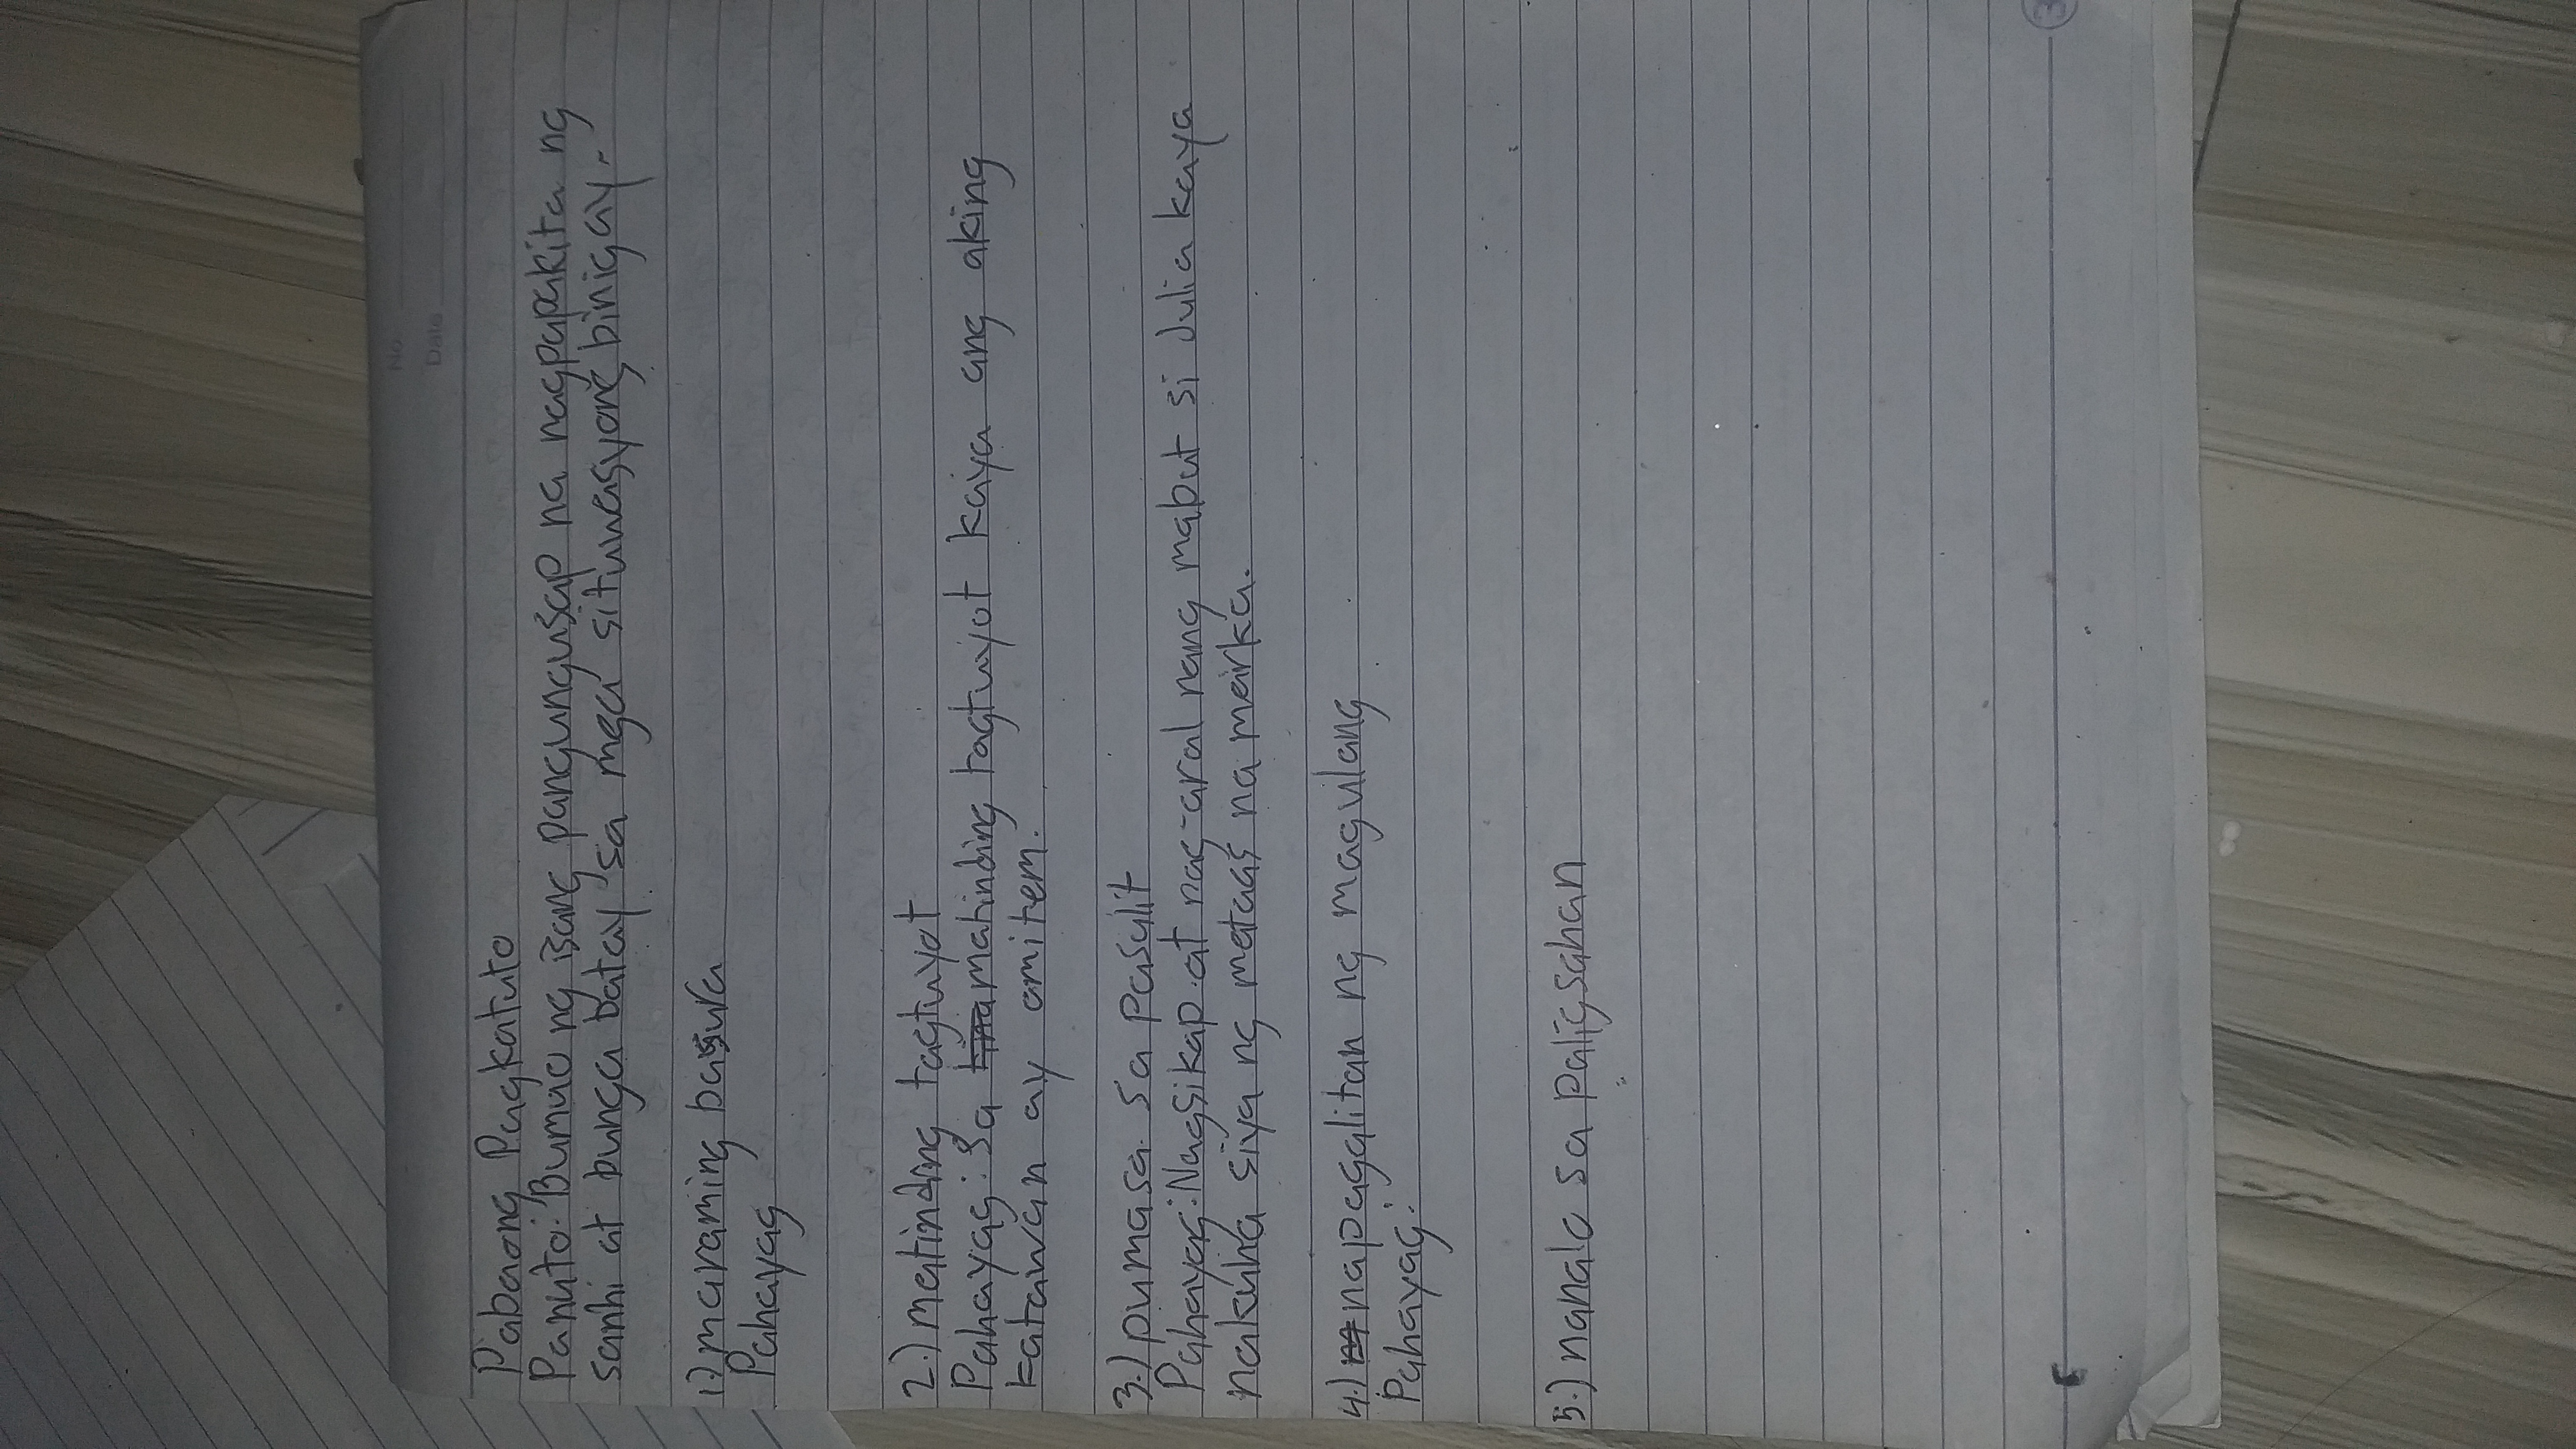 No.
Date
Pabaong Pagkatuto
Panuto: Bumuo ng isang pangungusap na nagpapakita ng
sanhi at bunga batay sa mga situwasyong binigay.
1.) maraming basura
Pahayag
2.) matinding tagtuyot
Pahayag: Sa matinding tagtuyot kaya ang aking
katawan ay omitem.
3.) pumasa sa pasulit
Pahayag: Nagsikap at nag-aral nang mabut si Julia kaya
nakuha siya ng mataas na marka.
4.) napagalitan ng magulang
Pahayag:
5.) nanalo sa paligsahan
3